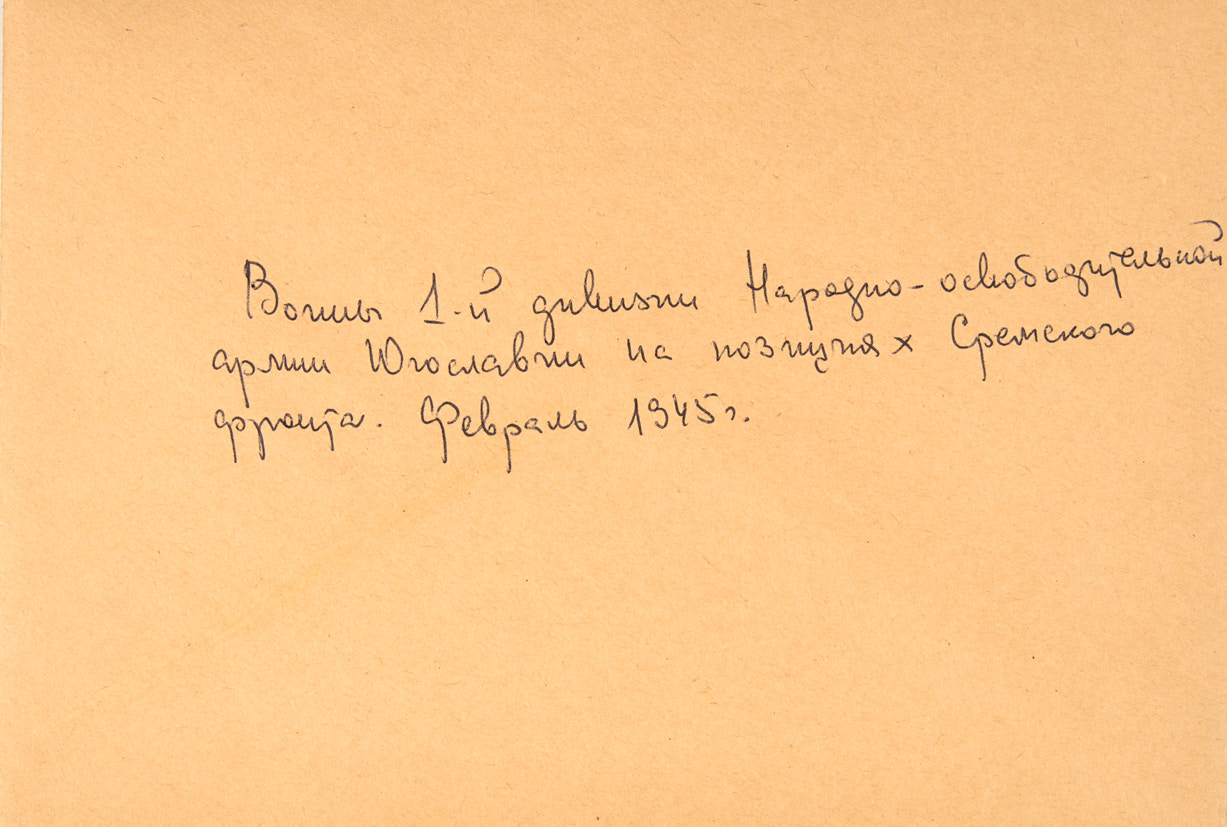 Воины 1-й дивизии Народно-освободительной
армии Югославии на позициях Сремского
фронта. Февраль 1945г.